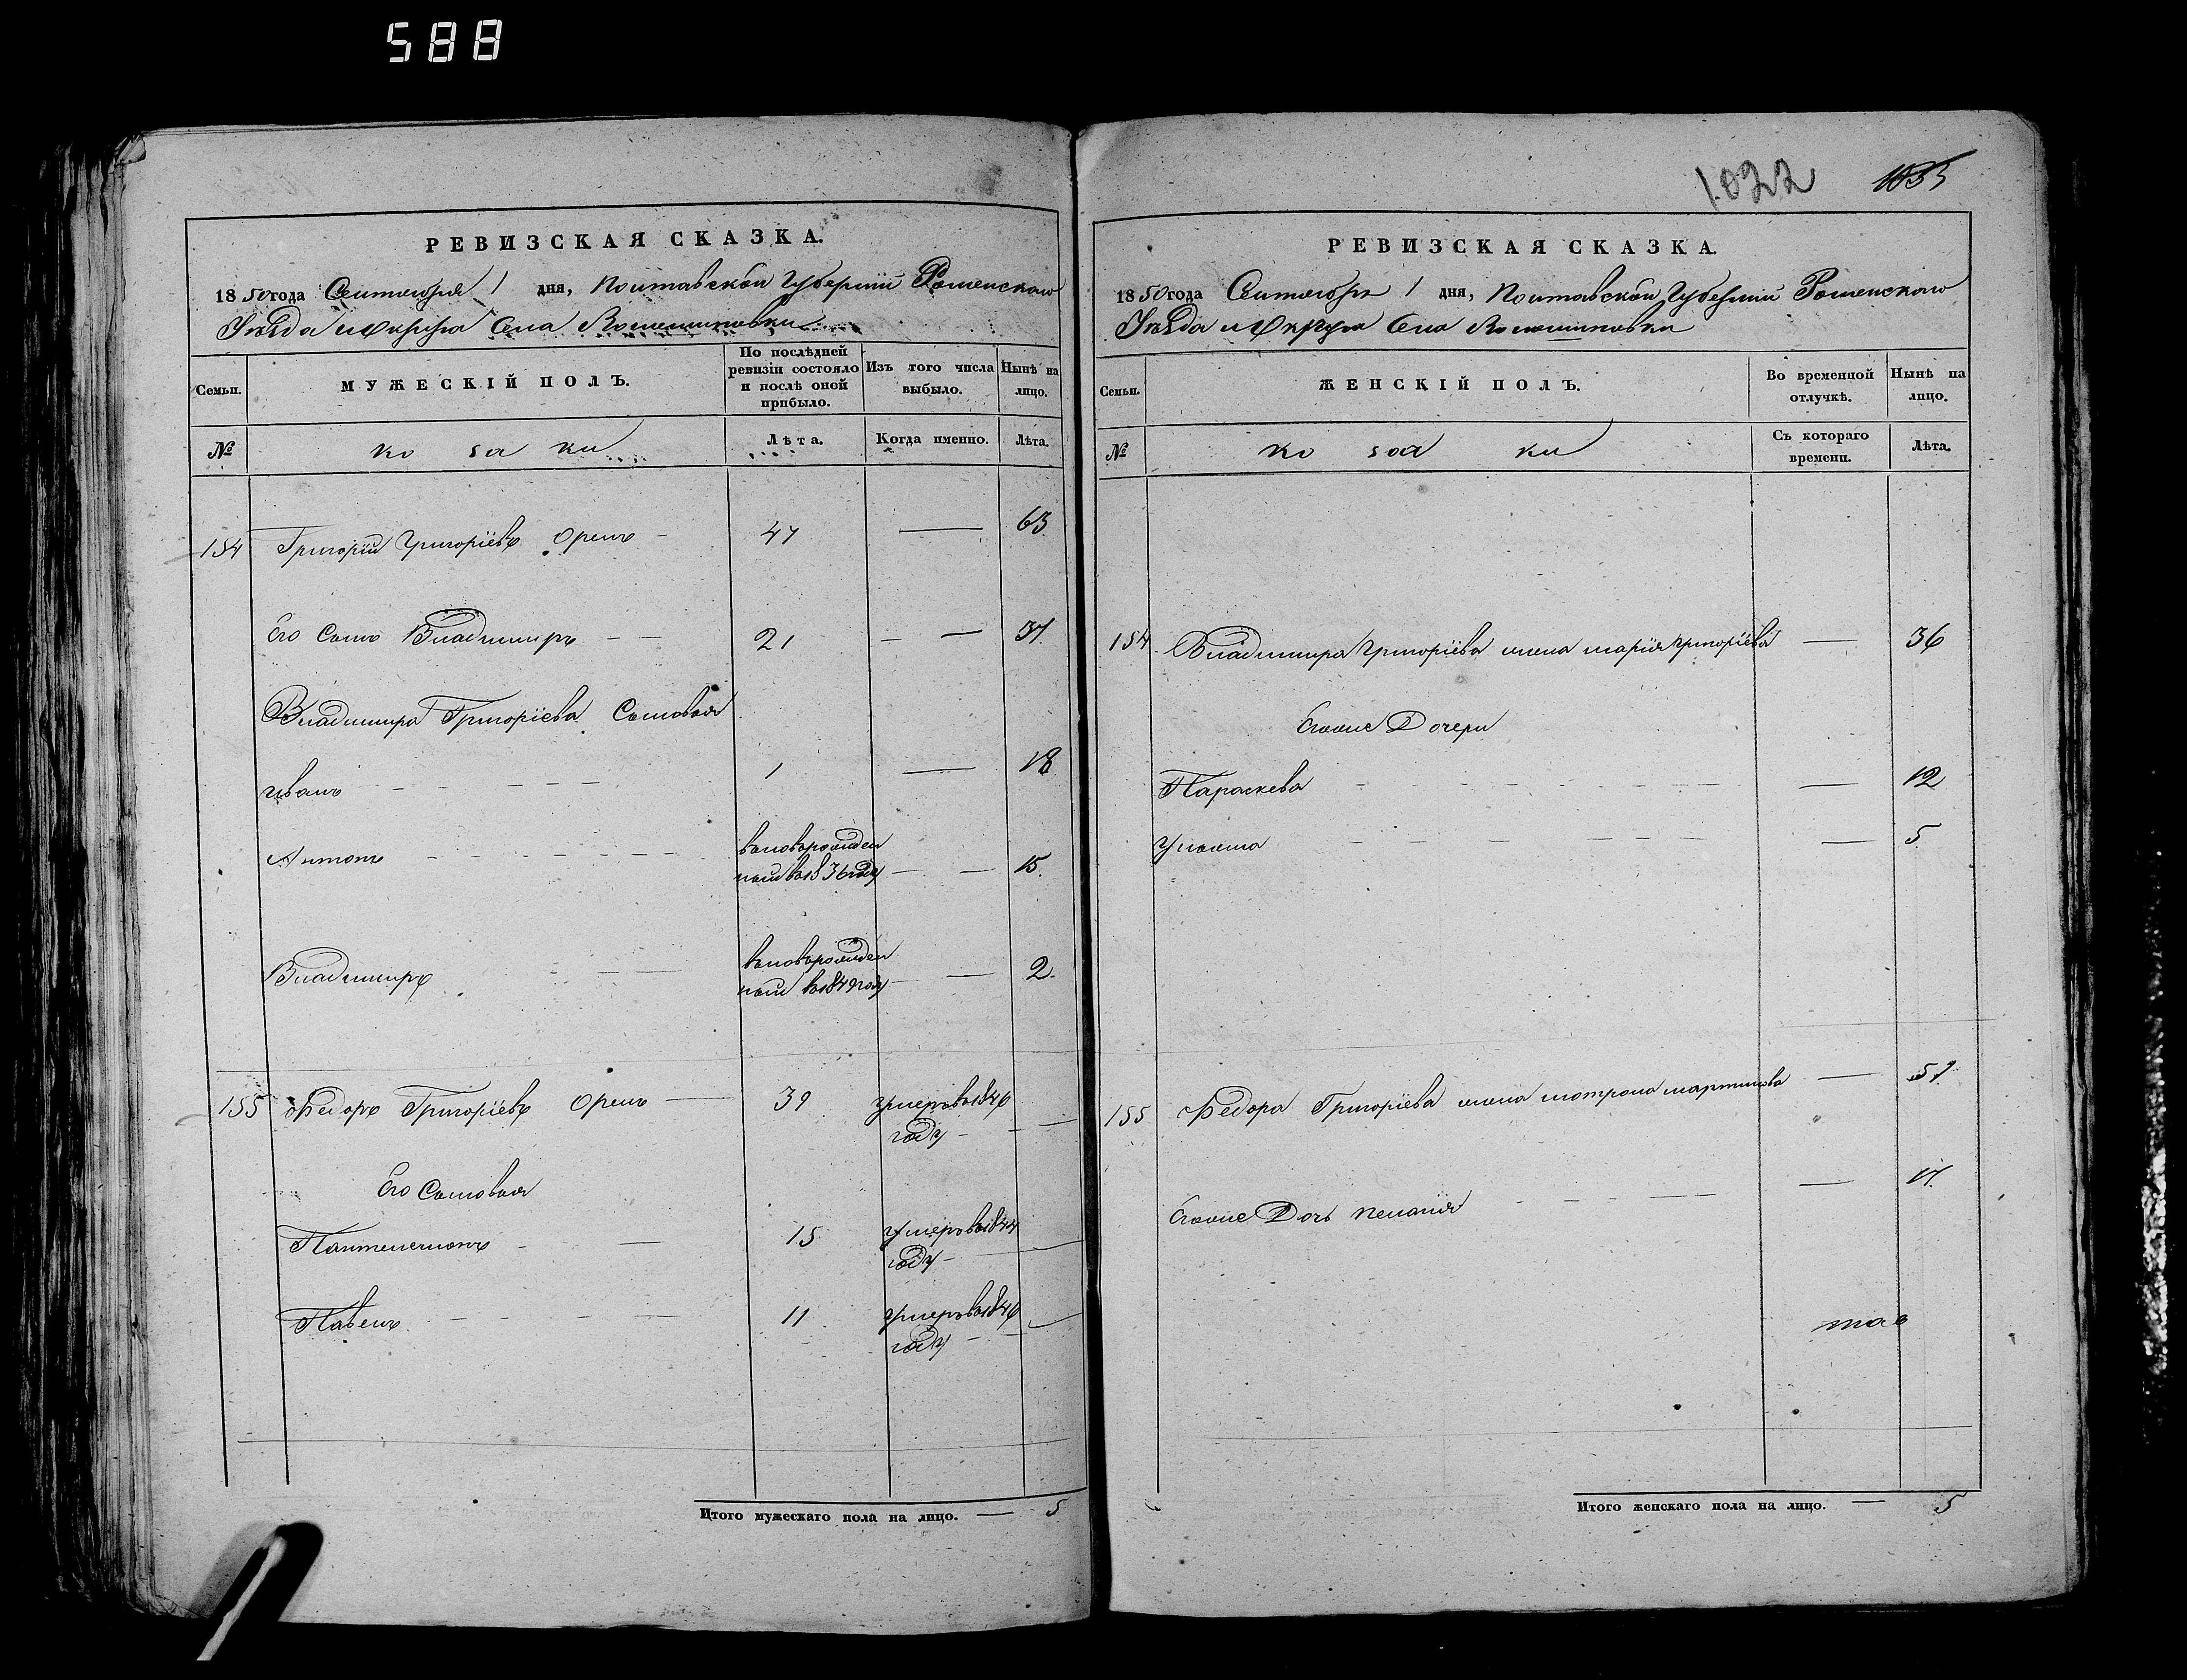 588
1.022 1035
РЕВИЗСКАЯ СКАЗКА.
1850 года Сентября 1 дня, Полтавской Губернии Роменского
Уѣзда и Округа Села
Семьи. МУЖЕСКІЙ ПОЛЪ. По послѣдней ревизіи состояло и послѣ оной прибыло. Изъ того числа выбыло. Нынѣ на лицо.
№ козаки Лѣта. Когда именно. Лѣта.
154 Григорій Григоріевъ Орелъ 47 — 63.
Его Сынъ Владимиръ — — 21 — — 37.
Владимира Григоріева Сыновья
Иванъ — — — — 1 — 18
Антонъ — — — — вновьрожден
ный въ 1836 году — — 15.
Владимиръ — — — вновьрожден
ный въ 1849 году — — 2.
155 Федоръ Григоріевъ Орелъ — 39 умеръ въ 1846
году — — —
Его Сыновья
Пантелемонъ — — 15 умеръ въ 1844
году — —
Павелъ — — — — 11 умеръ въ 1846
году — —
Итого мужескаго пола на лицо. — 5
РЕВИЗСКАЯ СКАЗКА.
1850 года Сентября 1 дня, Полтавской Губерніи Роменского
Уѣзда и Округа Села
Семьи. ЖЕНСКІЙ ПОЛЪ. Во временной отлучкѣ. Нынѣ на лицо.
№ козаки Съ котораго времени. Лѣта.
154. Владимира Григоріева жена Марія Григоріева — 36
Егоже Дочери
Параскева — — — — — — — 12
Ульяна — — — — — — — 5
155 Федора Григоріева жена Мотрона Мартинова — 51
Егоже Дочь Меланія — — — — — — 17.
Итого женскаго пола на лицо. — 5